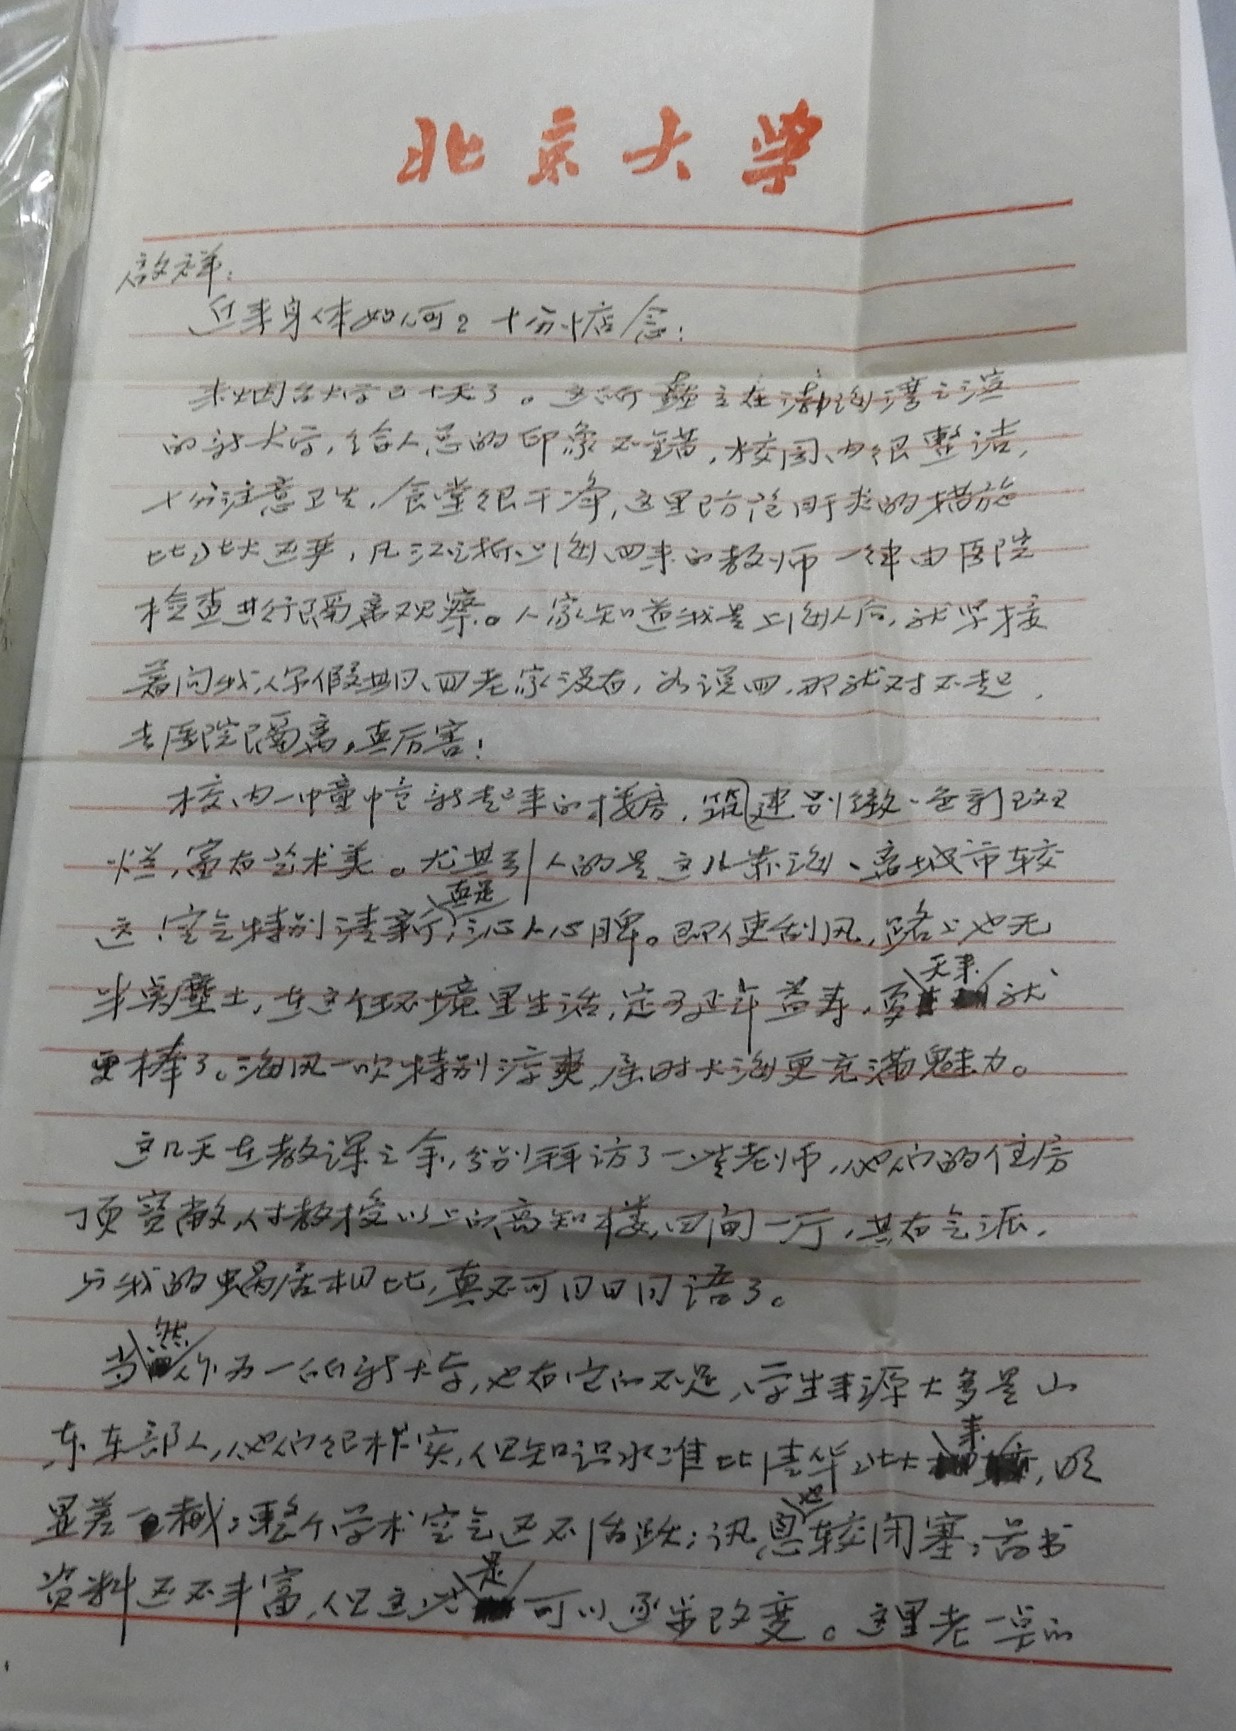 北京大学
启群：
近来身体如何？十分惦念！
来烟台大学已十天了。这所矗立在渤海湾之滨
的新大学，给人总的印象不错，校园内很整洁，
十分注意卫生，食堂很干净，这里防治肝炎的措施
比北大还要，凡江浙上海回来的教师一律由医院
检查进行隔离观察。人家知道我是上海人后，就紧接
着问我，你假期回老家没有，如说回，那就对不起，
去医院隔离，真厉害！
校内一幢幢新起来的楼房，筑建别致、色彩斑
烂，富有艺术美。尤其引人的是这儿靠海、离城市较
远！空气特别清新，真是沁人心脾。即使刮风，路上也无
半点尘土，在这个环境里生活，定可延年益寿，夏天来就
更棒了。海风一吹特别凉爽，届时大海更充满魅力。
这几天在教课之余，分别拜访了一些老师，他们的住房
顶宽敞，付教授以上的高知楼，四间一厅，共有气派，
与我的蜗居相比，真不可同日同语了。
当然作为一所新大学，也有它的不足，学生来源大多是山
东东部人，他们很朴实，但知识水准比清华北大来，明
显差一截；整个学术空气还不活跃；讯息也较闭塞；图书
资料还不丰富，但这些是可以逐步改变。这里老一点的